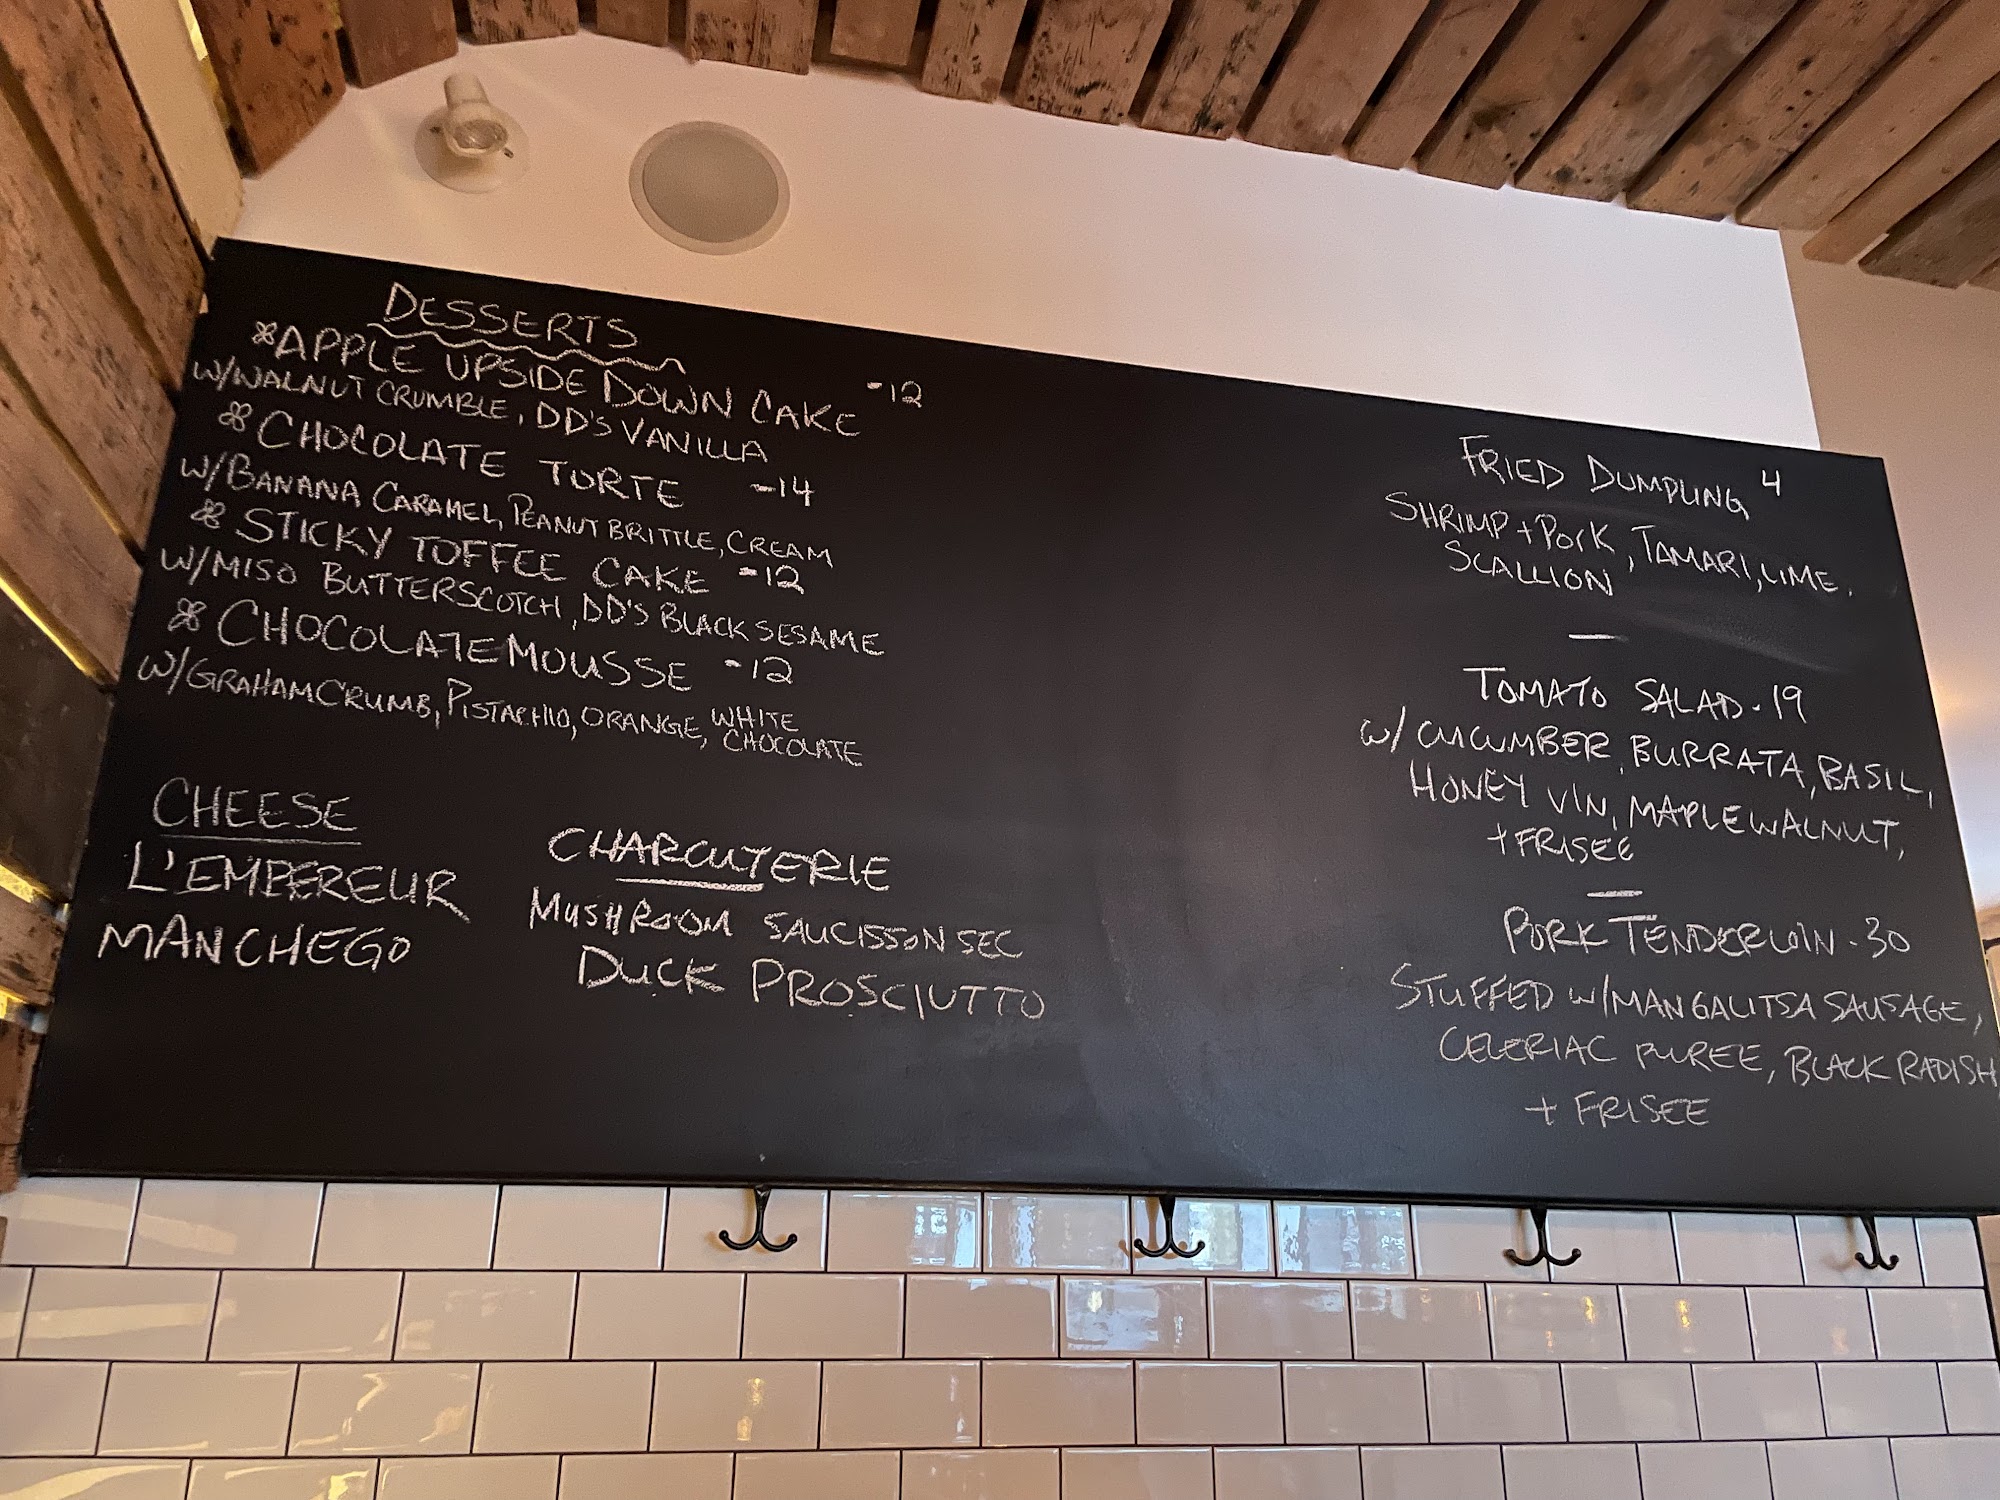 DESSERTS
*APPLE UPSIDE DOWN CAKE -12
W/WALNUT CRUMBLE, DD'S VANILLA
*CHOCOLATE TORTE -14
W/BANANA CARAMEL, PEANUT BRITTLE, CREAM
*STICKY TOFFEE CAKE -12
W/MISO BUTTERSCOTCH, DD'S BLACK SESAME
*CHOCOLATE MOUSSE -12
W/GRAHAM CRUMB, PISTACHIO, ORANGE, WHITE
CHOCOLATE
CHEESE
L'EMPEREUR
MANCHEGO
CHARCUTERIE
MUSHROOM SAUCISSON SEC
DUCK PROSCIUTTO
FRIED DUMPLING 4
SHRIMP + PORK, TAMARI, LIME.
SCALLION
—
TOMATO SALAD - 19
W/ CUCUMBER, BURRATA, BASIL,
HONEY VIN, MAPLE WALNUT,
+ FRISEE
—
PORK TENDERLOIN - 30
STUFFED W/MANGALITSA SAUSAGE,
CELERIAC PUREE, BLACK RADISH
+ FRISEE